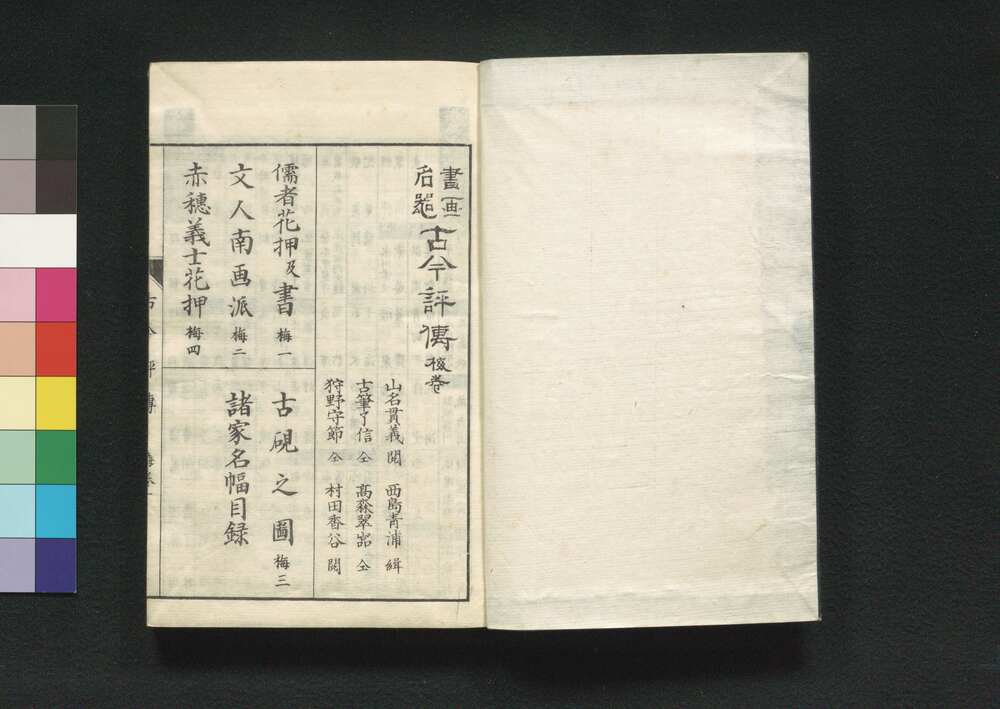 書画名器古今評傳 後巻
山名貫義 閲 西島青浦 緝
古筆了信 仝 高森翠岩 仝
狩野守節 仝 村田香谷 閲
儒者花押及書 梅一
古硯之圖 梅三
文人南画派 梅二
諸家名幅目録
赤穗義士花押 梅四
古今評傳